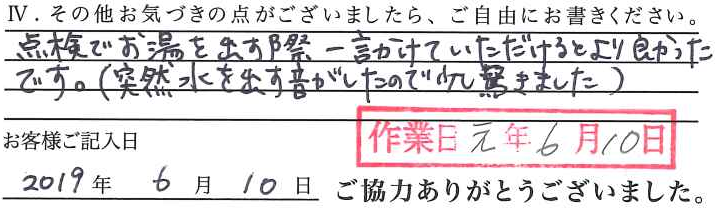 Ⅳ．その他お気づきの点がございましたら、ご自由にお書きください。
点検でお湯を出す際一言かけていただけるとより良かった
です。（突然水を出す音がしたので少し驚きました）
お客様ご記入日
作業日 元年6月10日
2019年 6月10日 ご協力ありがとうございました。